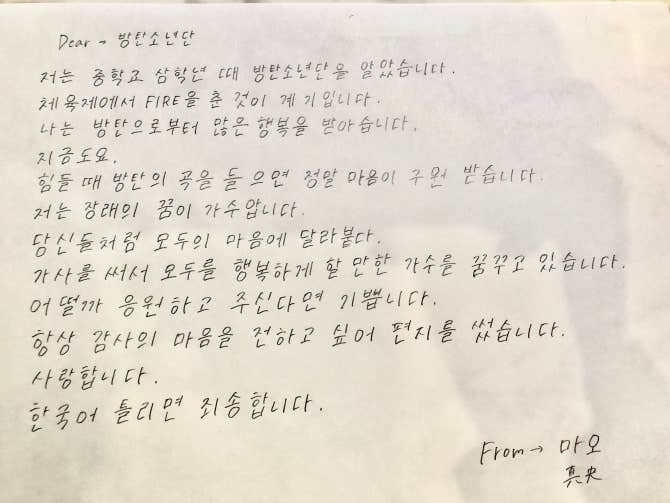 Dear → 방탄소년단
저는 중학교 삼학년 때 방탄소년단을 알았습니다.
체육제에서 FIRE을 춘 것이 계기입니다.
나는 방탄으로부터 많은 행복을 받아습니다.
지금도요.
힘들 때 방탄의 곡을 들으면 정말 마음이 구원 받습니다.
저는 장래의 꿈이 가수압니다.
당신들처럼 모두의 마음에 달라붙다.
가사를 써서 모두를 행복하게 할 만한 가수를 꿈꾸고 있습니다.
어떨까 응원하고 주신다면 기쁩니다.
항상 감사의 마음을 전하고 싶어 편지를 썼습니다.
사랑합니다.
한국어 틀리면 죄송합니다.
From → 마오
真央